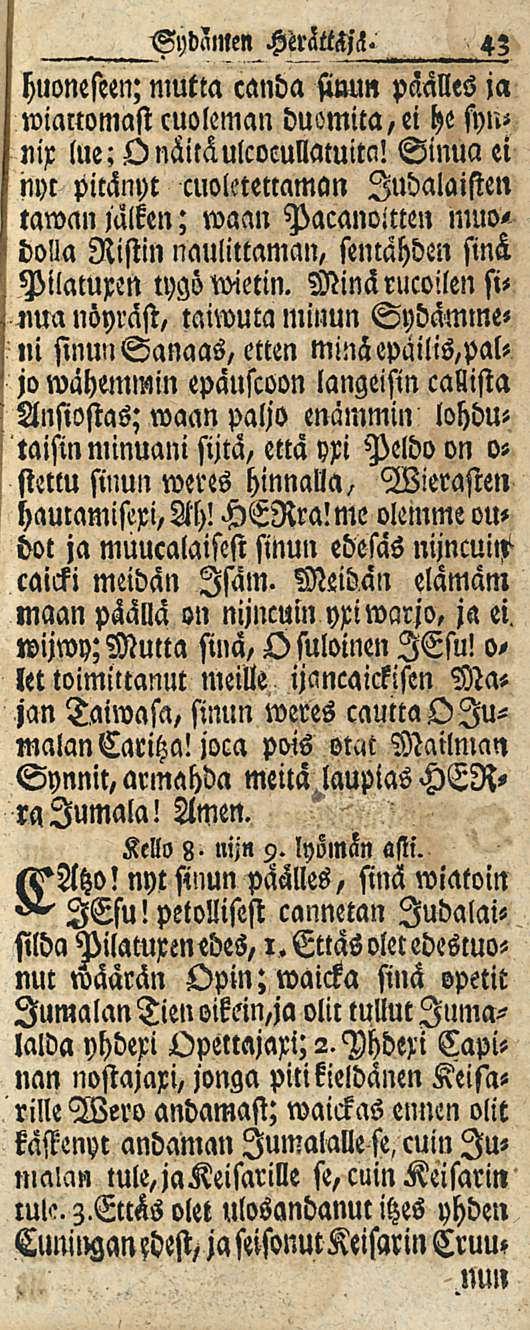 Sydämen Herättäjä. 43
huoneseen; mutta canda sinun päälles ja
wiattomast cuoleman duomita, ei he syn-
nix lue; O näitä ulcocullatuita! Sinua ei
nyt pitänyt cuoletettaman Judalaisten
tawan jälken; waan Pacanoitten muo-
dolla Ristin naulittaman, sentähden sinä
Pilatuxen tygö wietin. Minä rucoilen si-
nua nöyräst, taiwuta minun Sydämme-
ni sinun Sanaas, etten minä epäilis, pal-
jo wähemmin epäuscoon langeisin callista
Ansiostas; waan paljo enämmin lohdu-
taisin minuani sijtä, että yxi Peldo on o-
stettu sinun weres hinnalla, Wierasten
hautamisexi, Ah! HERra! me olemme ou-
dot ja muucalaisest sinun edesäs nijncuin
caicki meidän Isäm. Meidän elämäm
maan päällä on nijncuin yxi warjo, ja ei
wijwy; Mutta sinä, O suloinen JEsu! o-
let toimittanut meille ijancaickisen Ma-
jan Taiwasa, sinun weres cautta O Ju-
malan Caritza! joca pois otat Mailman
Synnit, armahda meitä laupias HER-
ra Jumala! Amen.
Kello 8. nijn 9. lyömän asti.
CAtzo! nyt sinun päälles, sinä wiatoin
JEsu! petollisest cannetan Judalai-
silda Pilatuxen edes, 1. Ettäs olet edestuo-
nut wäärän Opin; waicka sinä opetit
Jumalan Tien oikein, ja olit tullut Juma-
lalda yhdexi Opettajaxi; 2. Yhdexi Capi-
nan nostajaxi, jonga piti kieldänen Keisa-
rille Wero andamast; waickas ennen olit
käskenyt andaman Jumalalle se, cuin Ju-
malan tule, ja Keisarille se, cuin Keisarin
tule. 3. Ettäs olet ulosandanut itzes yhden
Cuningan edest, ja seisonut Keisarin Cruu-
nun